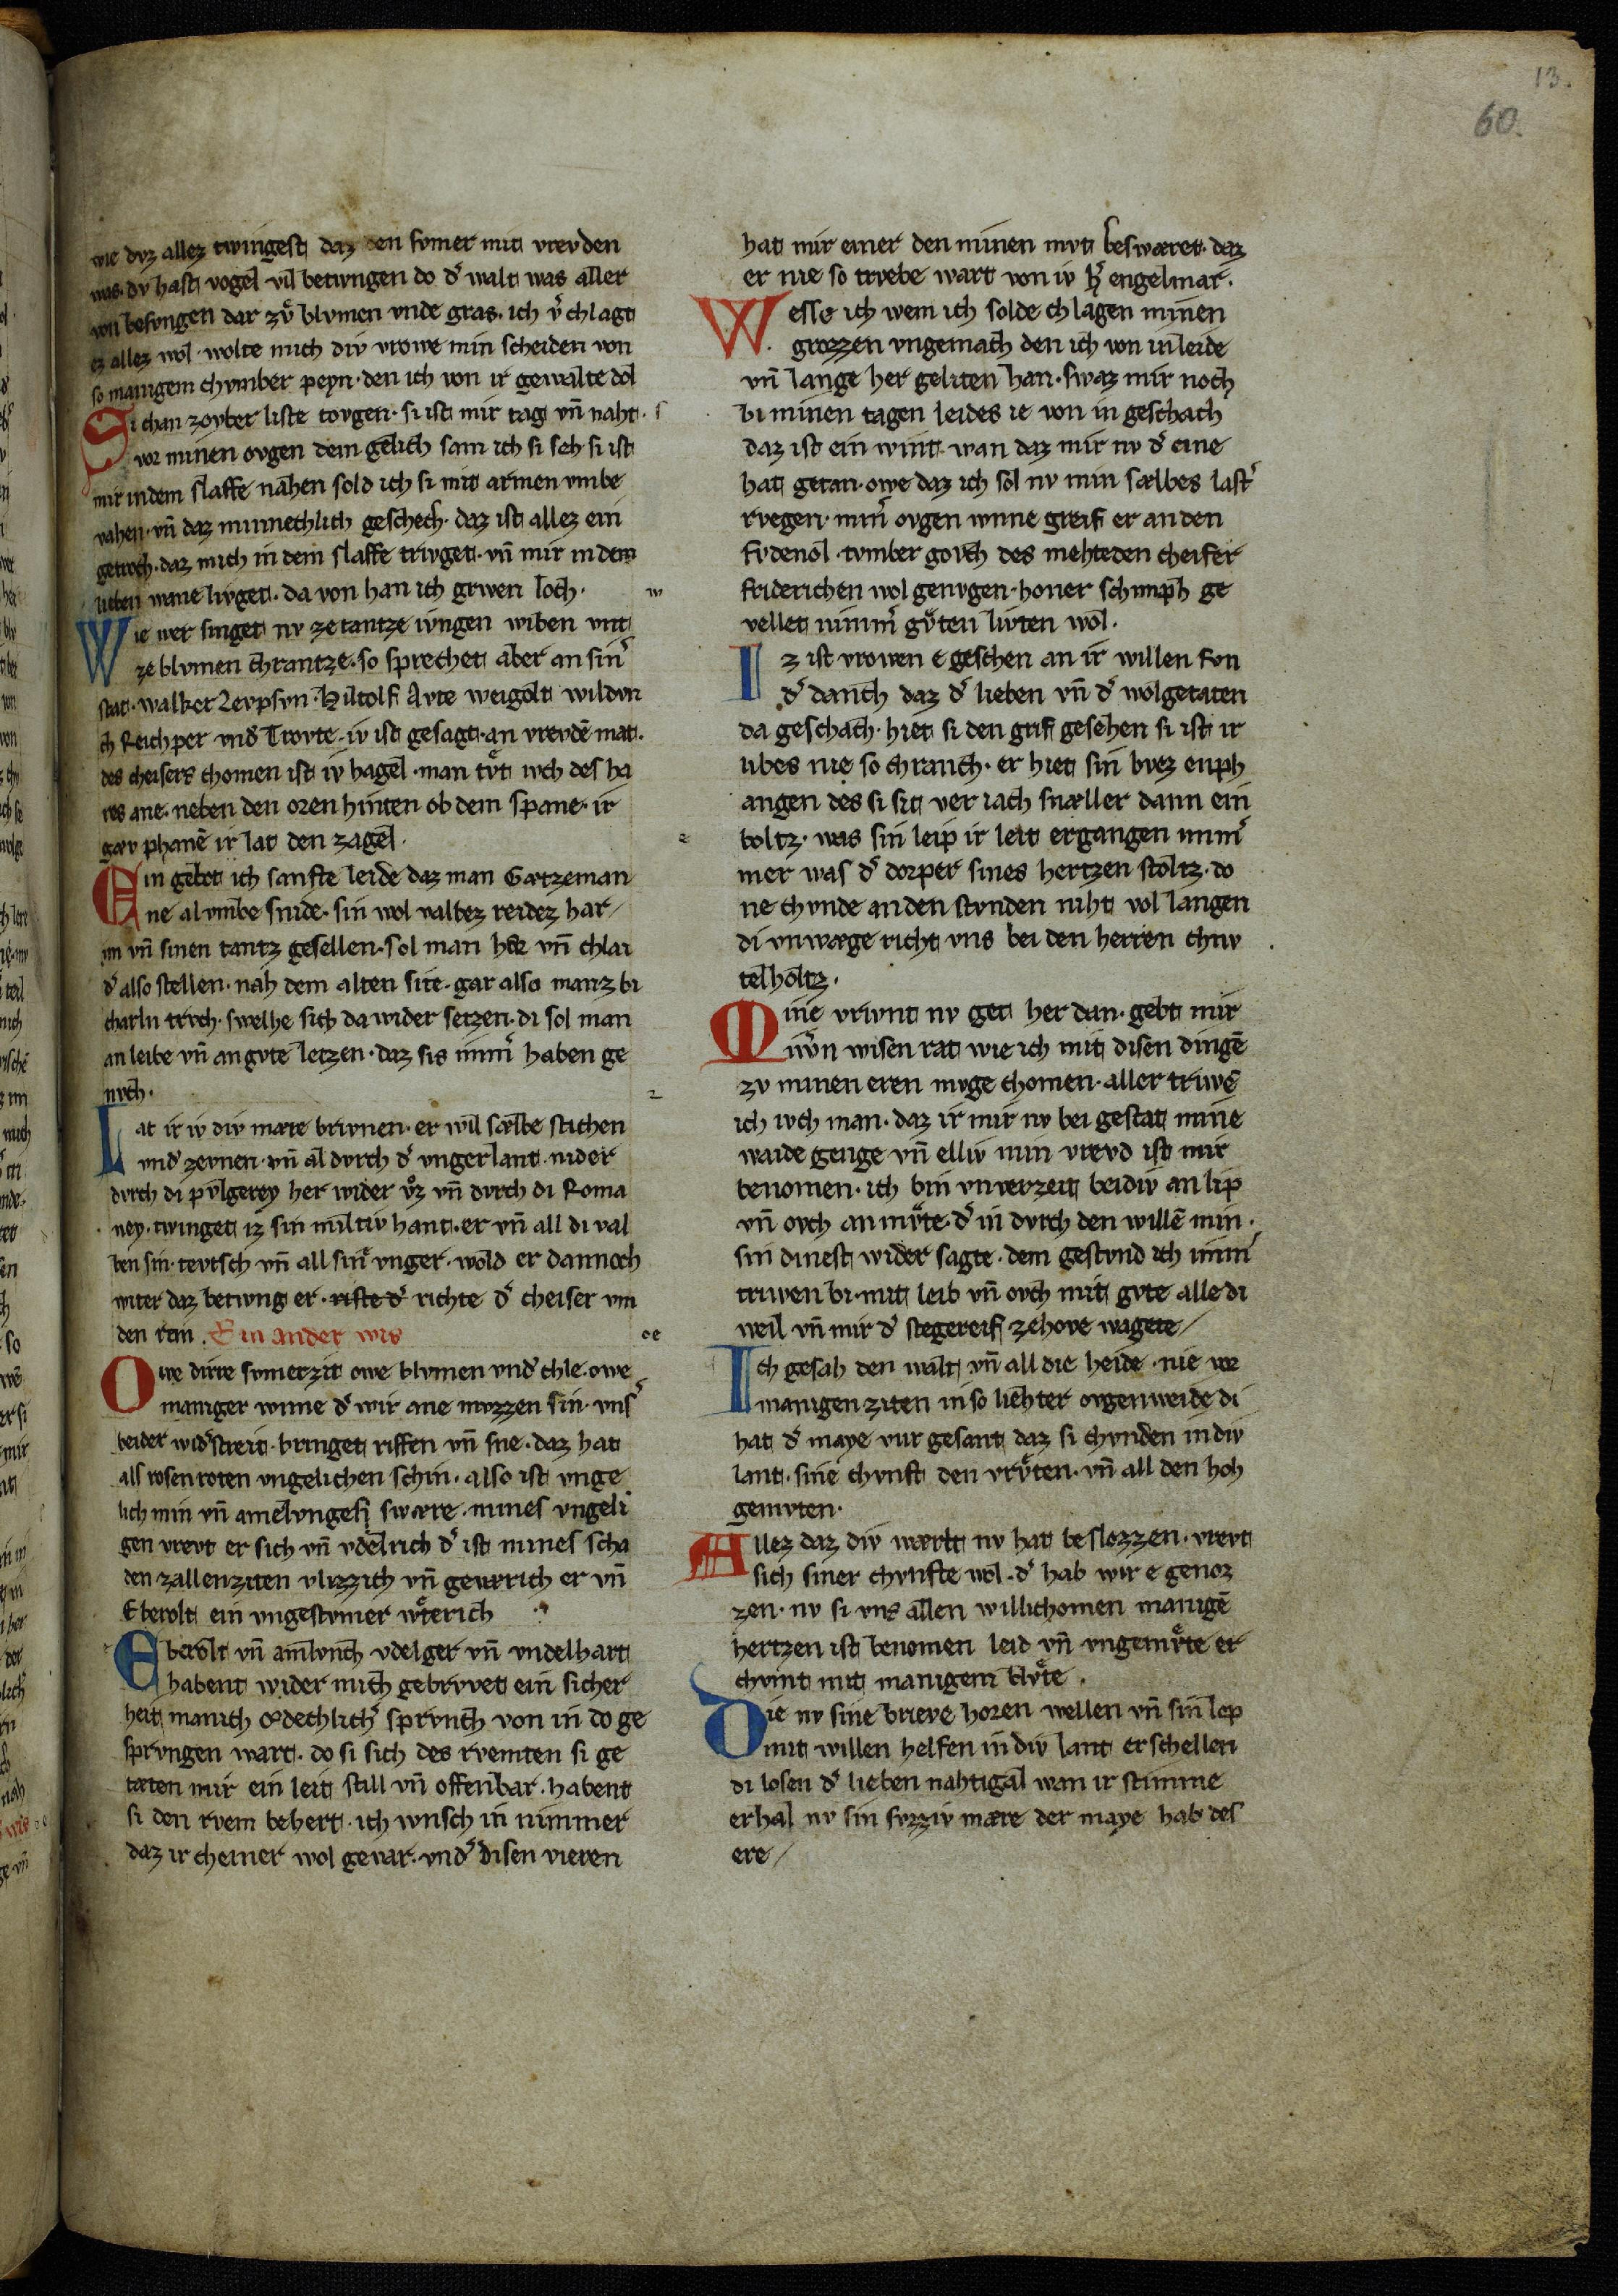 13.
60.
wie dvz allez twingest daz den svmer mit vrevden
was. dv hast vogel vil betwngen do dˢ walt was aller
von besvngen dar zvͦ blvmen vnde gras. ich vˢchlagt
ez allez wol. wolte mich div vrowe min scheiden von
so manigem chvmber peyn. den ich von ir gewalte dol
Si chan zovber liste tovgen. si ist mir tag vn̄ naht.
vor minen ovgen dem gelich sam ich si seh si ist
mir in dem slaffe nahen sold ich si mit armen vmbe
vahen. vn̄ daz minnechlich geschech. daz ist allez ein
getroch. daz mich in dem slaffe trivget. vn̄ mir in dem
lieben wane livget. da von han ich grwen loch.
Wie wer singet nv ze tantze ivngen wiben vnt
ze blvmen chrantze. so sprechet aber an sinˢ
stat. walker Zevpsvn. Hiltolf Avte weigolt wildvn
ch Reichper vndˢ Trovte. iv ist gesagt. an vrevdē mat.
des cheisers chomen ist iv hagel. man tvͦt ivch des ha
res ane. neben den oren hinten ob dem spane. ir
gæv phanē ir lat den zagel.
Ein gebot ich sanfte leide daz man Gætzeman
ne al vmbe snide. sin wol valtez reidez har
im vn̄ sinen tantz gesellen. sol man hær vn̄ chlai
dˢ also stellen. nah dem alten site. gar also manz bi
charln trvch. swelhe sich da wider setzen. di sol man
an leibe vn̄ an gvte letzen. daz sis immˢ haben ge
nvch.
Lat ir iv div mære brivnen. er wil sælbe stichen
vndˢ zevnen. vn̄ al dvrch dˢ vngerlant. nider
dvrch di pvlgerey her wider vͦz vn̄ dvrch di Roma
ney. twinget iz sin miltiv hant. er vn̄ all di val
ben sin. tevtsch vn̄ all sinˢ vnger. wold er dannoch
witer daz betwng er. rifte dˢ richte dˢ cheiser vm
den rein. Ein ander wis
Owe dirre svmerzit owe blvmen vndˢ chle. owe
maniger wnne dˢ wir ane mvzzen sin. vnsˢ
beider widˢstreit. bringet riffen vn̄ sne. daz hat
all rosen roten vngelichen schin. also ist vnge
lich min vn̄ amelvnges swære. mines vngeli
gen vrevt er sich vn̄ vdelrich dˢ ist mines scha
den zallen ziten vlizzich vn̄ gewrrich er vn̄
Eberolt ein vngestvmer wͦterich
Eberolt vn̄ amlvnch vdelger vn̄ vndelhart
habent wider mich gebrvvet ein sicher
heit manich ædechlichˢ sprvnch von in do ge
sprvngen wart. do si sich des rvemten si ge
tæten mir ein leit still vn̄ offenbar. habent
si den rvem behert. ich wnsch in nimmer
daz ir cheiner wol gevar. vndˢ disen vieren
hat mir einer den minen mvt beswæret. daz
er nie so trvebe wart von iv hˢ engelmar.
Wesse ich wem ich solde chlagen minen
grozzen vngemach den ich von in leide
vn̄ lange her geliten han. swaz mir noch
bi minen tagen leides ie von in geschach
daz ist ein wint. wan daz mir nv dˢ eine
hat getan. owe daz ich sol nv min sælbes lastˢ
rvegen. minˢ ovgen wnne greif er an den
fvdenol. tvmber govch des mehte den cheiser
friderichen wol genvgen. honer schimph ge
vellet nimmˢ gvͦten livten wol.
Iz ist vrowen e geschen an ir willen svn
dˢ danch daz dˢ lieben vn̄ dˢ wolgetaten
da geschach. hiet si den grif gesehen si ist ir
libes nie so chranch. er hiet sin bvez enph
angen des si sit ver iach snæller dann ein
boltz. was sin leip ir leit ergangen nimˢ
mer was dˢ dorper sines hertzen stoltz. do
ne chvnde an den stvnden niht vol langen
di vnwæge richt vns bei den herren chnv
telholtz.
Mine vrivnt nv get her dan. gebt mir
iwˢn wisen rat wie ich mit disen dingē
zv minen eren mvge chomen. aller triwē
ich ivch man. daz ir mir nv bei gestat mine
waide genge vn̄ elliv min vrevd ist mir
benomen. ich bin vnverzeit beidiv an lip
vn̄ ovch an mvͦte. dˢ in dvrch den willē min.
sin dinest wider sagte. dem gestvnd ich immˢ
triwen bi. mit leib vn̄ ovch mit gvte alle di
weil vn̄ mir dˢ stegereif ze hove wagete
Ich gesah den walt vn̄ all die heide. nie vor
manigen ziten in so liehter ovgenweide di
hat dˢ maye vur gesant daz si chvnden in div
lant. sine chvnft den vrvͦten. vn̄ all den hoh
gemvten.
Allez daz div wærlt nv hat beslozzen. vrevt
sich siner chvnfte wol. dˢ hab wir e genoz
zen. nv si vns allen willichomen manigē
hertzen ist benomen leid vn̄ vngemvͦte er
chvmt mit manigem blvͦte.
Die nv sine brieve horen wellen vn̄ sin lep
mit willen helfen in div lant erschellen
di losen dˢ lieben nahtigal wan ir stimme
erhal nv sin svzziv mære der maye hab des
ere